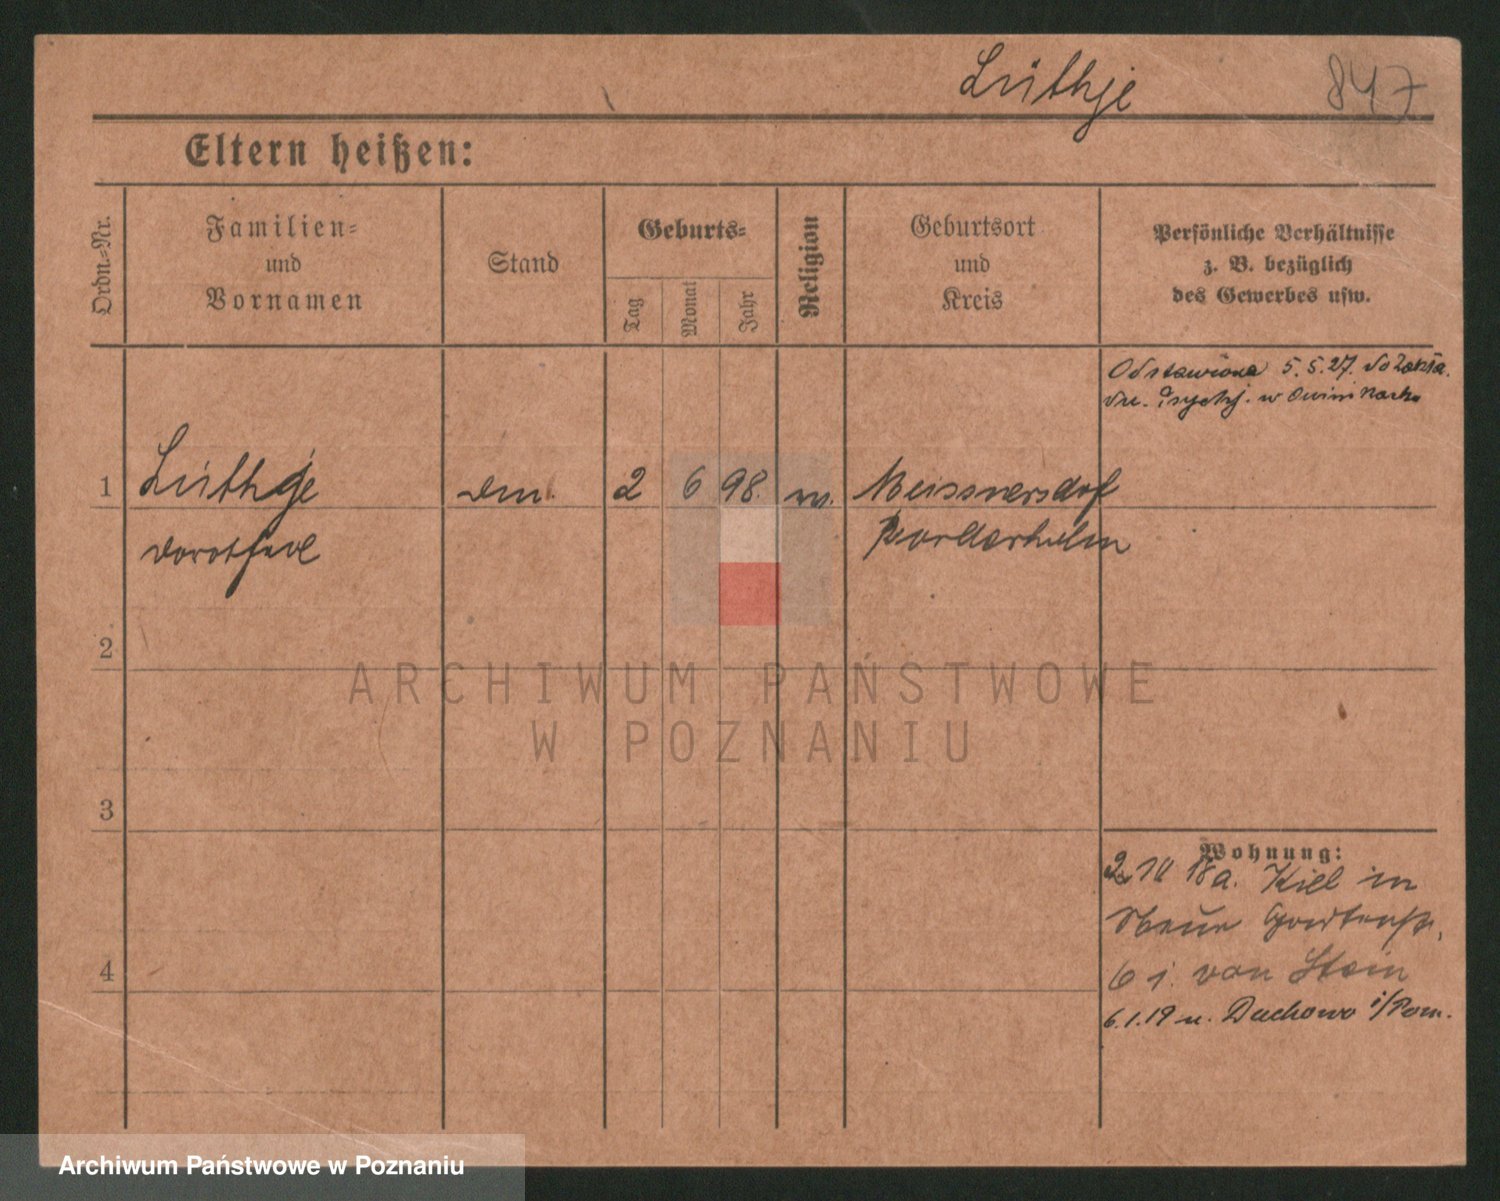 Lüthje 847
Eltern heißen:
Ordn.-Nr.
Familien-
und
Vornamen
Stand
Geburts-
Tag
Monat
Jahr
Religion
Geburtsort
und
Kreis
Persönliche Verhältnisse
z. B. bezüglich
des Gewerbes usw.
Odstawiona 5.5.27. do Zakła.
w Owinskach
1 Lüthje 2 6 98. Meissnersdorf
Dorothea
2
3
4
Wohnung:
18 a. Kiel in
Neue
6 von Stein
6.1.19 n. Duchowo i/Pom.
ARCHIWUM PAŃSTWOWE
W POZNANIU
Archiwum Państwowe w Poznaniu